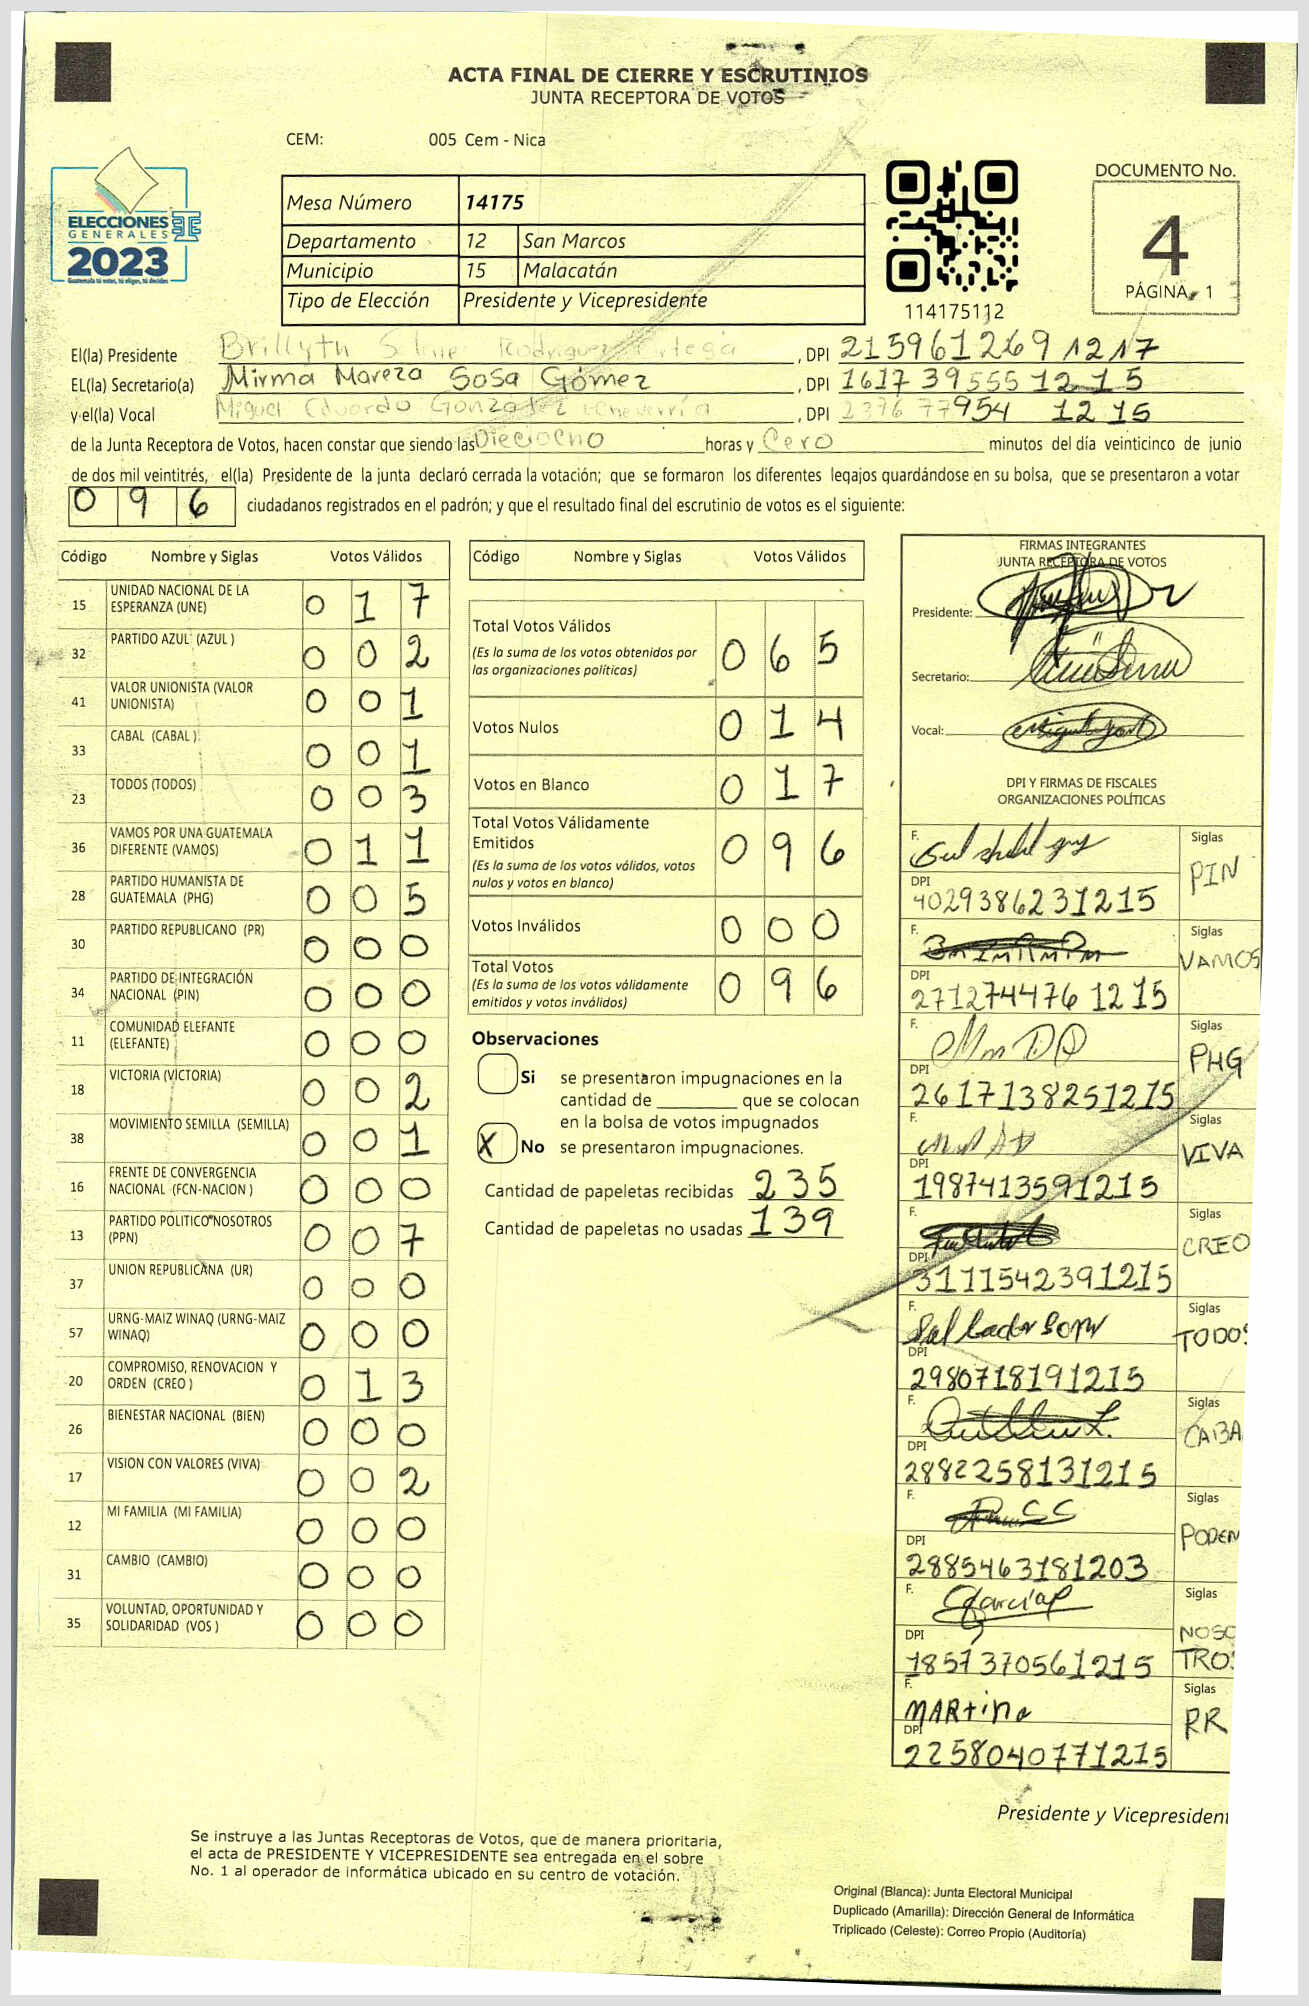 ACTA FINAL DE CIERRE Y ESCRUTINIOS
JUNTA RECEPTORA DE VOTOS
CEM: 005 Cem - Nica
ELECCIONES
GENERALES
2023
Guatemala tú votas, tú eliges, tú decides
Mesa Número 14175
Departamento 12 San Marcos
Municipio 15 Malacatán
Tipo de Elección Presidente y Vicepresidente
114175112
DOCUMENTO No.
4
PÁGINA 1
El(la) Presidente Brillyth Rodriguez , DPI 215961269 1217
EL(la) Secretario(a) Mirma Mareza Sosa Gómez , DPI 1617 39555 1215
y el(la) Vocal Miguel Eduardo Gonzalez Echeverría , DPI 2376 77954 1215
de la Junta Receptora de Votos, hacen constar que siendo las Dieciocho horas y Cero minutos del día veinticinco de junio
de dos mil veintitrés, el(la) Presidente de la junta declaró cerrada la votación; que se formaron los diferentes legajos guardándose en su bolsa, que se presentaron a votar
0 9 6 ciudadanos registrados en el padrón; y que el resultado final del escrutinio de votos es el siguiente:
Código Nombre y Siglas Votos Válidos
15 UNIDAD NACIONAL DE LA
ESPERANZA (UNE) 0 1 7
32 PARTIDO AZUL (AZUL ) 0 0 2
41 VALOR UNIONISTA (VALOR
UNIONISTA) 0 0 1
33 CABAL (CABAL ) 0 0 1
23 TODOS (TODOS) 0 0 3
36 VAMOS POR UNA GUATEMALA
DIFERENTE (VAMOS) 0 1 1
28 PARTIDO HUMANISTA DE
GUATEMALA (PHG) 0 0 5
30 PARTIDO REPUBLICANO (PR) 0 0 0
34 PARTIDO DE INTEGRACIÓN
NACIONAL (PIN) 0 0 0
11 COMUNIDAD ELEFANTE
(ELEFANTE) 0 0 0
18 VICTORIA (VICTORIA) 0 0 2
38 MOVIMIENTO SEMILLA (SEMILLA) 0 0 1
16 FRENTE DE CONVERGENCIA
NACIONAL (FCN-NACION ) 0 0 0
13 PARTIDO POLITICO NOSOTROS
(PPN) 0 0 7
37 UNION REPUBLICANA (UR) 0 0 0
57 URNG-MAIZ WINAQ (URNG-MAIZ
WINAQ) 0 0 0
20 COMPROMISO, RENOVACION Y
ORDEN (CREO ) 0 1 3
26 BIENESTAR NACIONAL (BIEN) 0 0 0
17 VISION CON VALORES (VIVA) 0 0 2
12 MI FAMILIA (MI FAMILIA) 0 0 0
31 CAMBIO (CAMBIO) 0 0 0
35 VOLUNTAD, OPORTUNIDAD Y
SOLIDARIDAD (VOS ) 0 0 0
Código Nombre y Siglas Votos Válidos
Total Votos Válidos
(Es la suma de los votos obtenidos por
las organizaciones políticas) 0 6 5
Votos Nulos 0 1 4
Votos en Blanco 0 1 7
Total Votos Válidamente
Emitidos
(Es la suma de los votos válidos, votos
nulos y votos en blanco) 0 9 6
Votos Inválidos 0 0 0
Total Votos
(Es la suma de los votos válidamente
emitidos y votos inválidos) 0 9 6
Observaciones
Si se presentaron impugnaciones en la
cantidad de que se colocan
en la bolsa de votos impugnados
X No se presentaron impugnaciones.
Cantidad de papeletas recibidas 235
Cantidad de papeletas no usadas 139
FIRMAS INTEGRANTES
JUNTA RECEPTORA DE VOTOS
Presidente:
Secretario:
Vocal:
DPI Y FIRMAS DE FISCALES
ORGANIZACIONES POLÍTICAS
F. Siglas
PIN
DPI
4029386231215
F. Siglas
VAMOS
DPI
271274476 1215
F. Siglas
PHG
DPI
2617138251215
F. Siglas
VIVA
DPI
1987413591215
F. Siglas
CREO
DPI
3111542391215
F. Siglas
TODOS
DPI
2980718191215
F. Siglas
CABA
DPI
2882258131215
F. Siglas
PODEM
DPI
2885463181203
F. Garcia Siglas
NOSO
TROS
DPI
1857370561215
F. MARtina Siglas
RR
DPI
2258040771215
Presidente y Vicepresident
Se instruye a las Juntas Receptoras de Votos, que de manera prioritaria,
el acta de PRESIDENTE Y VICEPRESIDENTE sea entregada en el sobre
No. 1 al operador de informática ubicado en su centro de votación.
Original (Blanca): Junta Electoral Municipal
Duplicado (Amarilla): Dirección General de Informática
Triplicado (Celeste): Correo Propio (Auditoría)